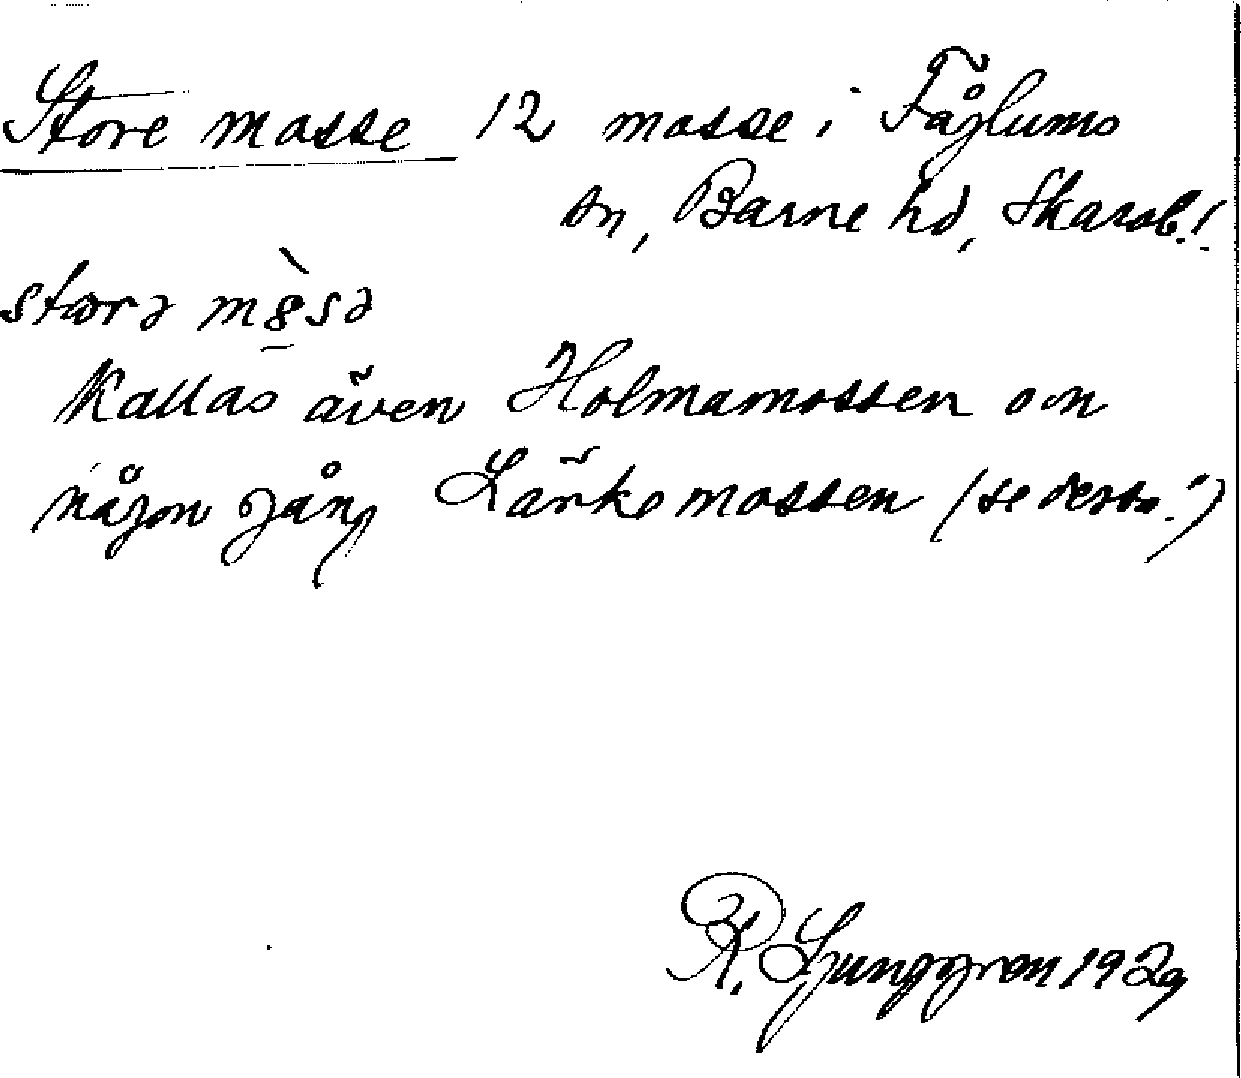 Store mosse 12 mosse i Fåglums
sn, Barne hd, Skarab.l.
kallas även Holmamossen om
någon gång Lärkemossen (se dessa!)
R. Ljunggren 1929